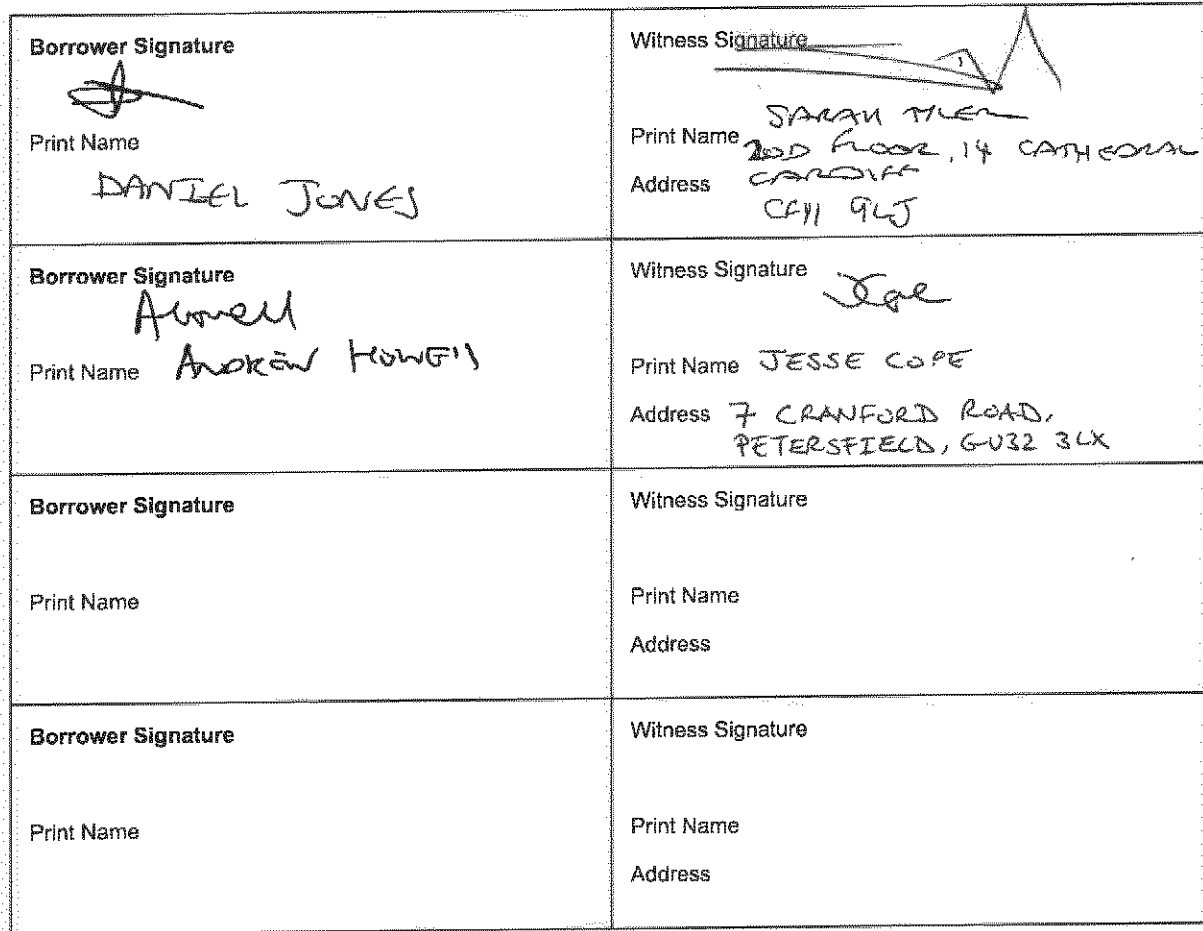 Borrower Signature
Print Name
DANIEL JONES
Witness Signature
SARAH
Print Name
2ND FLOOR, 14 CATHEDRAL
Address CARDIFF
CF11 9LJ
Borrower Signature
Print Name ANDREW HOWELLS
Witness Signature
Print Name JESSE COPE
Address 7 CRANFORD ROAD,
PETERSFIELD, GU32 3LX
Borrower Signature
Print Name
Witness Signature
Print Name
Address
Borrower Signature
Print Name
Witness Signature
Print Name
Address